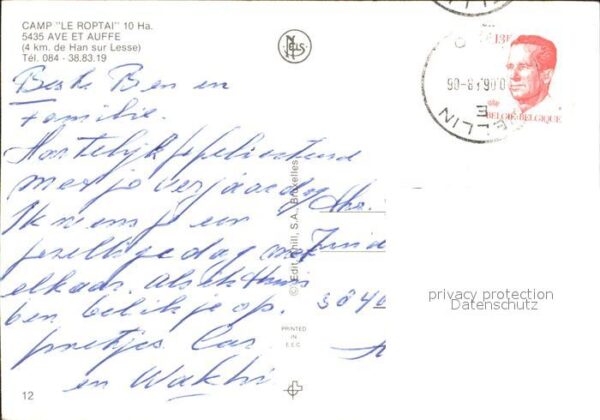 CAMP "LE ROPTAI" 10 Ha.
5435 AVE ET AUFFE
(4 km. de Han sur Lesse)
Tél. 084 - 38.83.19
NELS
13F
BELGIE-BELGIQUE
WELLIN
Beste Ben en
Familie.
Hartelijk gefeliciteerd
met je verjaardag
Ik wens je een
gezellige dag met
elkaar. Als ik thuis
ben bel ik je op.
groetjes Cor
en
Mr.
Zuid
3840
© Edit. Thill, S.A., Bruxelles
PRINTED
IN
E.E.C.
12
privacy protection
Datenschutz